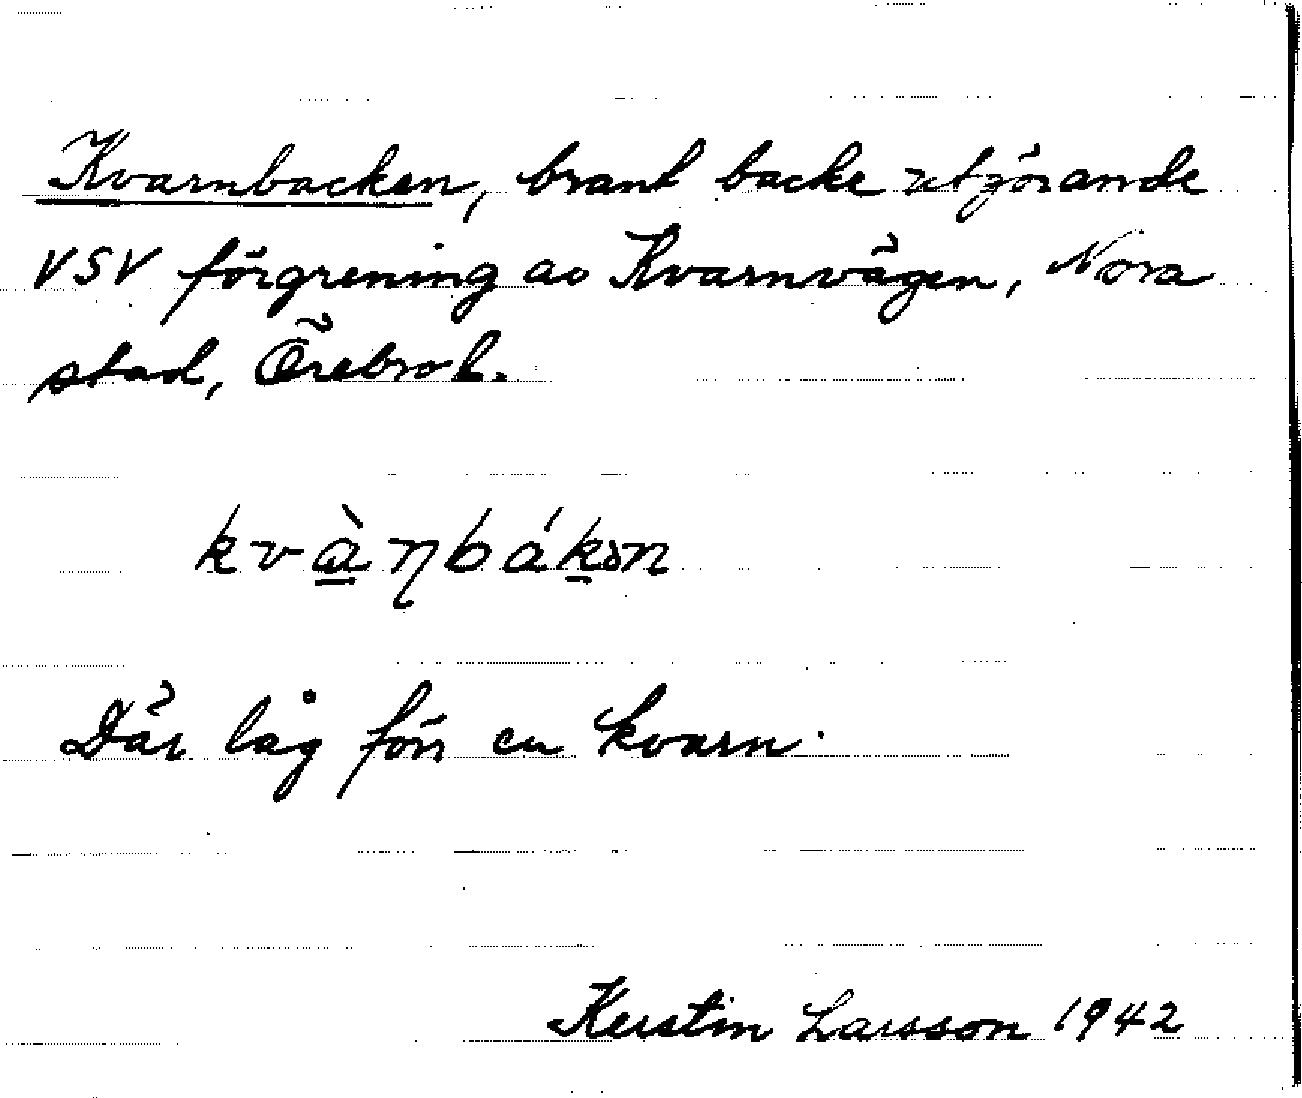 Kvarnbacken, brant backe utgörande
VSV förgrening av Kvarnvägen, Nora
stad, Örebro l.
kvὰ̱ɳbák̠ən
Där låg förr en kvarn.
Kerstin Larsson 1942